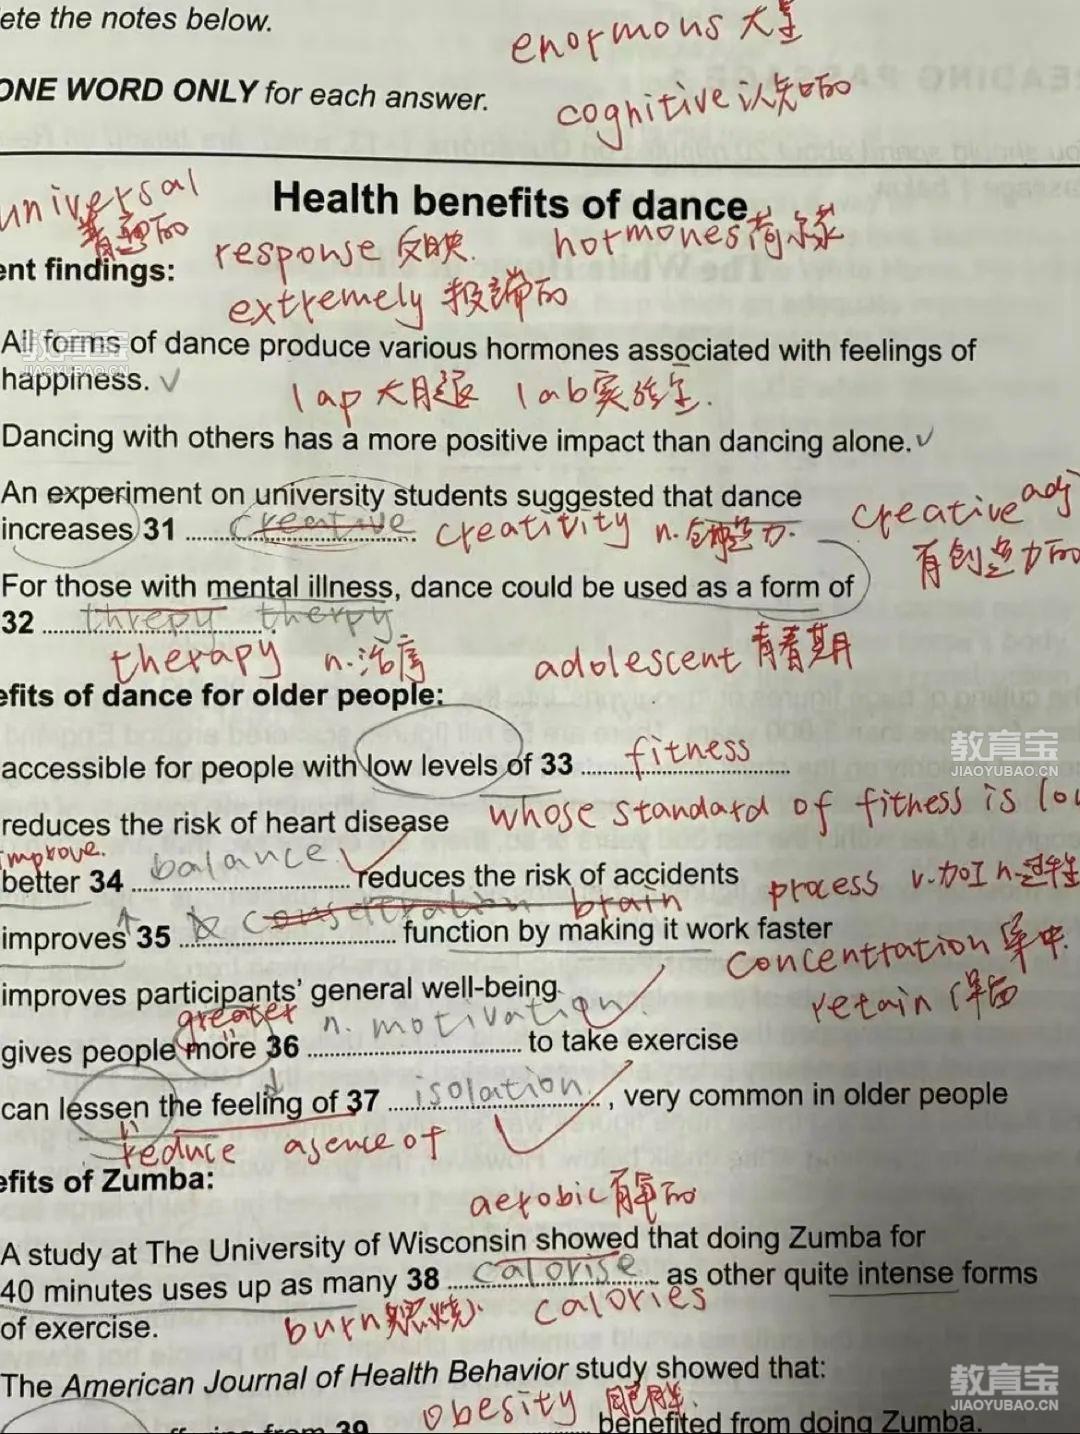 ete the notes below.
enormous 大量
ONE WORD ONLY for each answer.
cognitive 认知的
universal
普遍的
Health benefits of dance
response 反映. hormones 荷尔蒙
ent findings:
extremely 极端的
All forms of dance produce various hormones associated with feelings of
happiness. ✓
lap 大腿 lab 实验室.
Dancing with others has a more positive impact than dancing alone. ✓
An experiment on university students suggested that dance
increases 31 creative creativity n. 创造力. creative adj
有创造力的
For those with mental illness, dance could be used as a form of
32 threpy therpy
therapy n. 治疗 adolescent 青春期
efits of dance for older people:
accessible for people with low levels of 33 fitness
whose standard of fitness is lou
reduces the risk of heart disease
improve.
better 34 balance reduces the risk of accidents
process v.加工 n.过程
improves 35 brain function by making it work faster
concentration 集中.
improves participants' general well-being
retain 保留
greater n. motivation.
gives people more 36 to take exercise
can lessen the feeling of 37 isolation. , very common in older people
reduce asence of
efits of Zumba:
aerobic 有氧的
A study at The University of Wisconsin showed that doing Zumba for
40 minutes uses up as many 38 calorise as other quite intense forms
burn 燃烧 calories
of exercise.
The American Journal of Health Behavior study showed that:
obesity 肥胖.
from 39 benefited from doing Zumba.
教育宝
JIAOYUBAO.CN
教育宝
JIAOYUBAO.CN
教育宝
JIAOYUBAO.CN